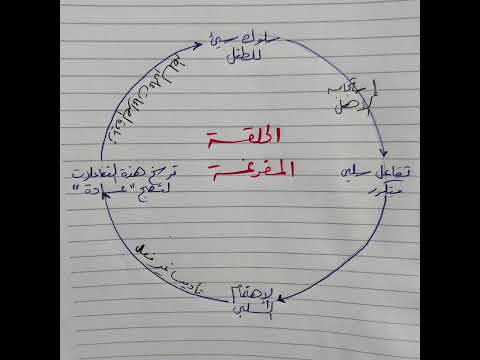 سلوك سيئ
للطفل
إستجابة
الأهل
تفاعل سلبي
متكرر
الاهتمام
السلبي
تأديب غير فعال
ترسخ هذه التفاعلات
لتصبح "عادة"
الحلقة
المفرغة